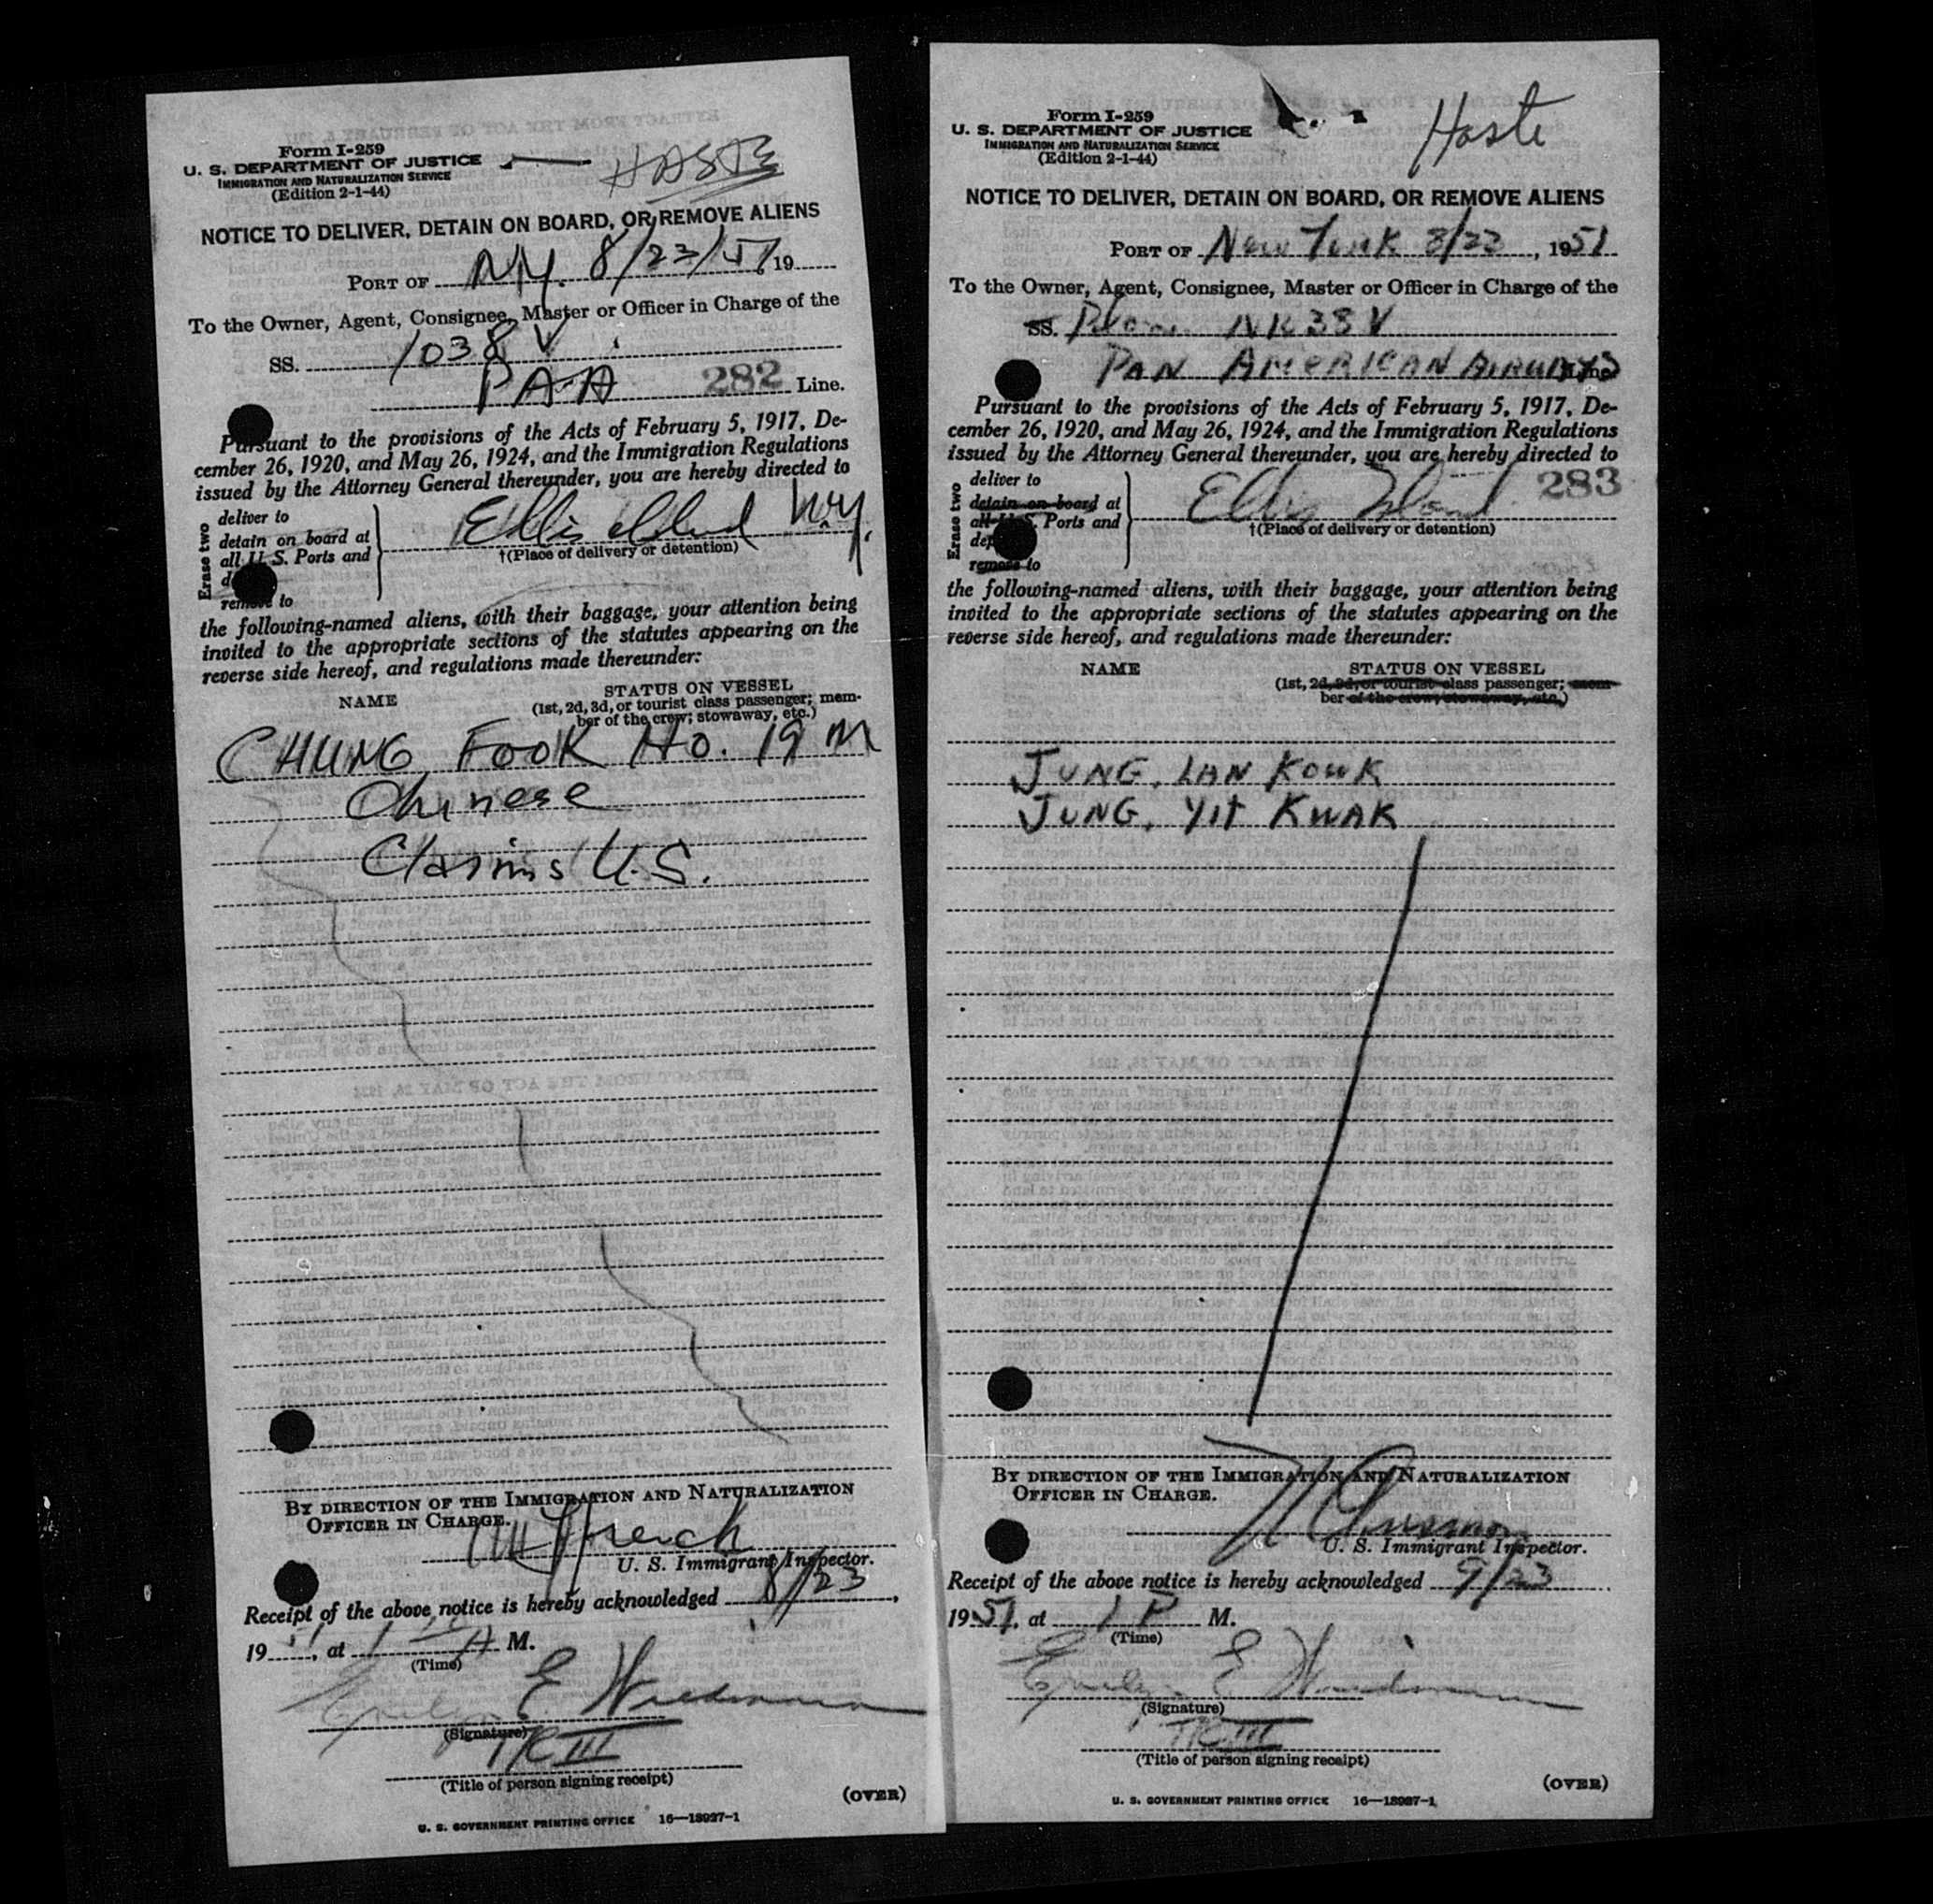 Form I-259
U. S. DEPARTMENT OF JUSTICE
IMMIGRATION AND NATURALIZATION SERVICE
(Edition 2-1-44)
HASTE
NOTICE TO DELIVER, DETAIN ON BOARD, OR REMOVE ALIENS
PORT OF NY. 8/23/51, 19
To the Owner, Agent, Consignee, Master or Officer in Charge of the
SS. 1038 V
PAA 282 Line.
Pursuant to the provisions of the Acts of February 5, 1917, De-
cember 26, 1920, and May 26, 1924, and the Immigration Regulations
issued by the Attorney General thereunder, you are hereby directed to
Erase two
deliver to
detain on board at
all U. S. Ports and
remove to
Ellis Island N.Y.
†(Place of delivery or detention)
the following-named aliens, with their baggage, your attention being
invited to the appropriate sections of the statutes appearing on the
reverse side hereof, and regulations made thereunder:
NAME
STATUS ON VESSEL
(1st, 2d, 3d, or tourist class passenger; mem-
ber of the crew; stowaway, etc.)
CHUNG, FOOK HO. 19 M
Chinese
Claims U.S.
BY DIRECTION OF THE IMMIGRATION AND NATURALIZATION
OFFICER IN CHARGE.
U. S. Immigrant Inspector.
Receipt of the above notice is hereby acknowledged 8/23,
1951, at A M.
(Time)
E
(Signature)
(Title of person signing receipt)
(OVER)
U. S. GOVERNMENT PRINTING OFFICE 16—18927-1
Form I-259
U. S. DEPARTMENT OF JUSTICE
IMMIGRATION AND NATURALIZATION SERVICE
(Edition 2-1-44)
Haste
NOTICE TO DELIVER, DETAIN ON BOARD, OR REMOVE ALIENS
PORT OF New York 8/23, 1951
To the Owner, Agent, Consignee, Master or Officer in Charge of the
SS. Plane 38 V
PAN AMERICAN AIRWAYS
Pursuant to the provisions of the Acts of February 5, 1917, De-
cember 26, 1920, and May 26, 1924, and the Immigration Regulations
issued by the Attorney General thereunder, you are hereby directed to
283
Erase two
deliver to
detain on board at
all U. S. Ports and
remove to
Ellis Island
†(Place of delivery or detention)
the following-named aliens, with their baggage, your attention being
invited to the appropriate sections of the statutes appearing on the
reverse side hereof, and regulations made thereunder:
NAME
STATUS ON VESSEL
(1st, 2d, 3d, or tourist class passenger; mem-
ber of the crew; stowaway, etc.)
JUNG, LAN KOWK
JUNG, YIT KWAK
BY DIRECTION OF THE IMMIGRATION AND NATURALIZATION
OFFICER IN CHARGE.
U. S. Immigrant Inspector.
Receipt of the above notice is hereby acknowledged 9/23,
1951, at 1 P M.
(Time)
E
(Signature)
(Title of person signing receipt)
(OVER)
U. S. GOVERNMENT PRINTING OFFICE 16—18927-1